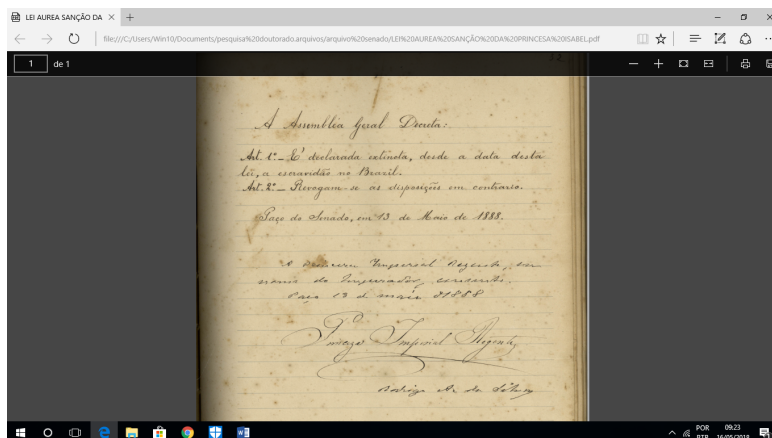 LEI AUREA SANÇÃO DA
file:///C:/Users/Win10/Documents/pesquisa%20doutorado.arquivos/arquivo%20senado/LEI%20AUREA%20SANÇÃO%20DA%20PRINCESA%20ISABEL.pdf
1 de 1
A Assembléa Geral Decreta:
Art. 1º_ E' declarada extincta, desde a data desta
lei, a escravidão no Brazil.
Art. 2º_ Revogam-se as disposições em contrario.
Paço do Senado, em 13 de Maio de 1888.
A Princeza Imperial Regente, em
nome do Imperador, consente.
Paço 13 de maio de 1888
Princeza Imperial Regente
Rodrigo A. da Silva
POR 09:23
PTB 16/05/2018